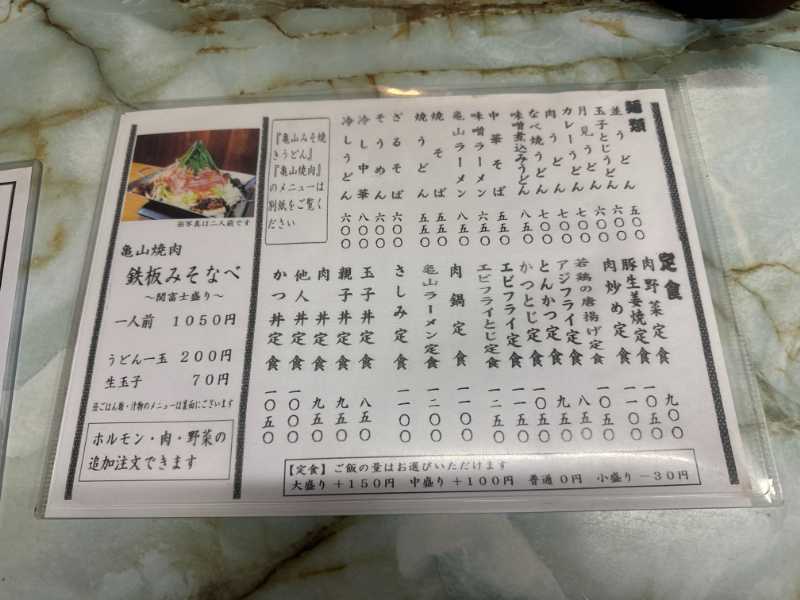 麺類
並うどん 五〇〇
玉子とじうどん 六〇〇
月見うどん 六〇〇
カレーうどん 七〇〇
肉うどん 七〇〇
なべ焼うどん 七〇〇
味噌煮込みうどん 八五〇
中華そば 五〇〇
味噌ラーメン 六五〇
亀山ラーメン 八五〇
焼そば 五五〇
焼うどん 五五〇
ざるそば 六〇〇
そうめん 六〇〇
冷し中華 八〇〇
冷しうどん 六〇〇
『亀山みそ焼
きうどん』
『亀山焼肉』
のメニューは
別紙をご覧く
ださい
定食
肉野菜定食 九〇〇
豚生姜焼定食 一〇五〇
肉炒め定食 一一〇〇
若鶏の唐揚げ定食 九〇〇
アジフライ定食 八五〇
とんかつ定食 九五〇
かつとじ定食 一〇五〇
エビフライ定食 一一五〇
エビフライとじ定食 一二五〇
肉鍋定食 一一〇〇
亀山ラーメン定食 一二〇〇
さしみ定食 一一〇〇
玉子丼定食 八五〇
親子丼定食 九五〇
肉丼定食 九五〇
他人丼定食 一〇〇〇
かつ丼定食 一〇五〇
【定食】ご飯の量はお選びいただけます
大盛り+150円 中盛り+100円 普通0円 小盛り-30円
※写真は二人前です
亀山焼肉
鉄板みそなべ
～関富士盛り～
一人前 1050円
うどん一玉 200円
生玉子 70円
※ごはん類・汁物のメニューは裏面にございます
ホルモン・肉・野菜の
追加注文できます